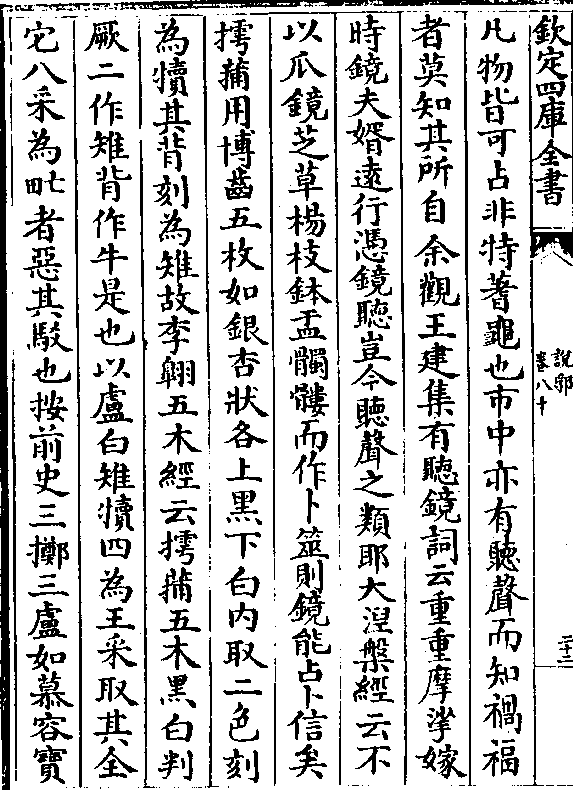 欽定四庫全書
說郛
卷八十
二十二
凡物皆可占非特蓍龜也市中亦有聽聲而知禍福
者莫知其所自余觀王建集有聽鏡詞云重重摩挲嫁
時鏡夫婿遠行憑鏡聽豈今聽聲之類耶大湼槃經云不
以爪鏡芝草楊枝鉢盂髑髏而作卜筮則鏡能占卜信矣
摴蒱用博齒五枚如銀杏狀各上黒下白内取二色刻
為犢其背刻為雉故李翺五木經云摴蒱五木黒白判
厥二作雉背作牛是也以盧白雉犢四為王采取其全
它八采為甿者惡其駁也按前史三擲三盧如慕容寶